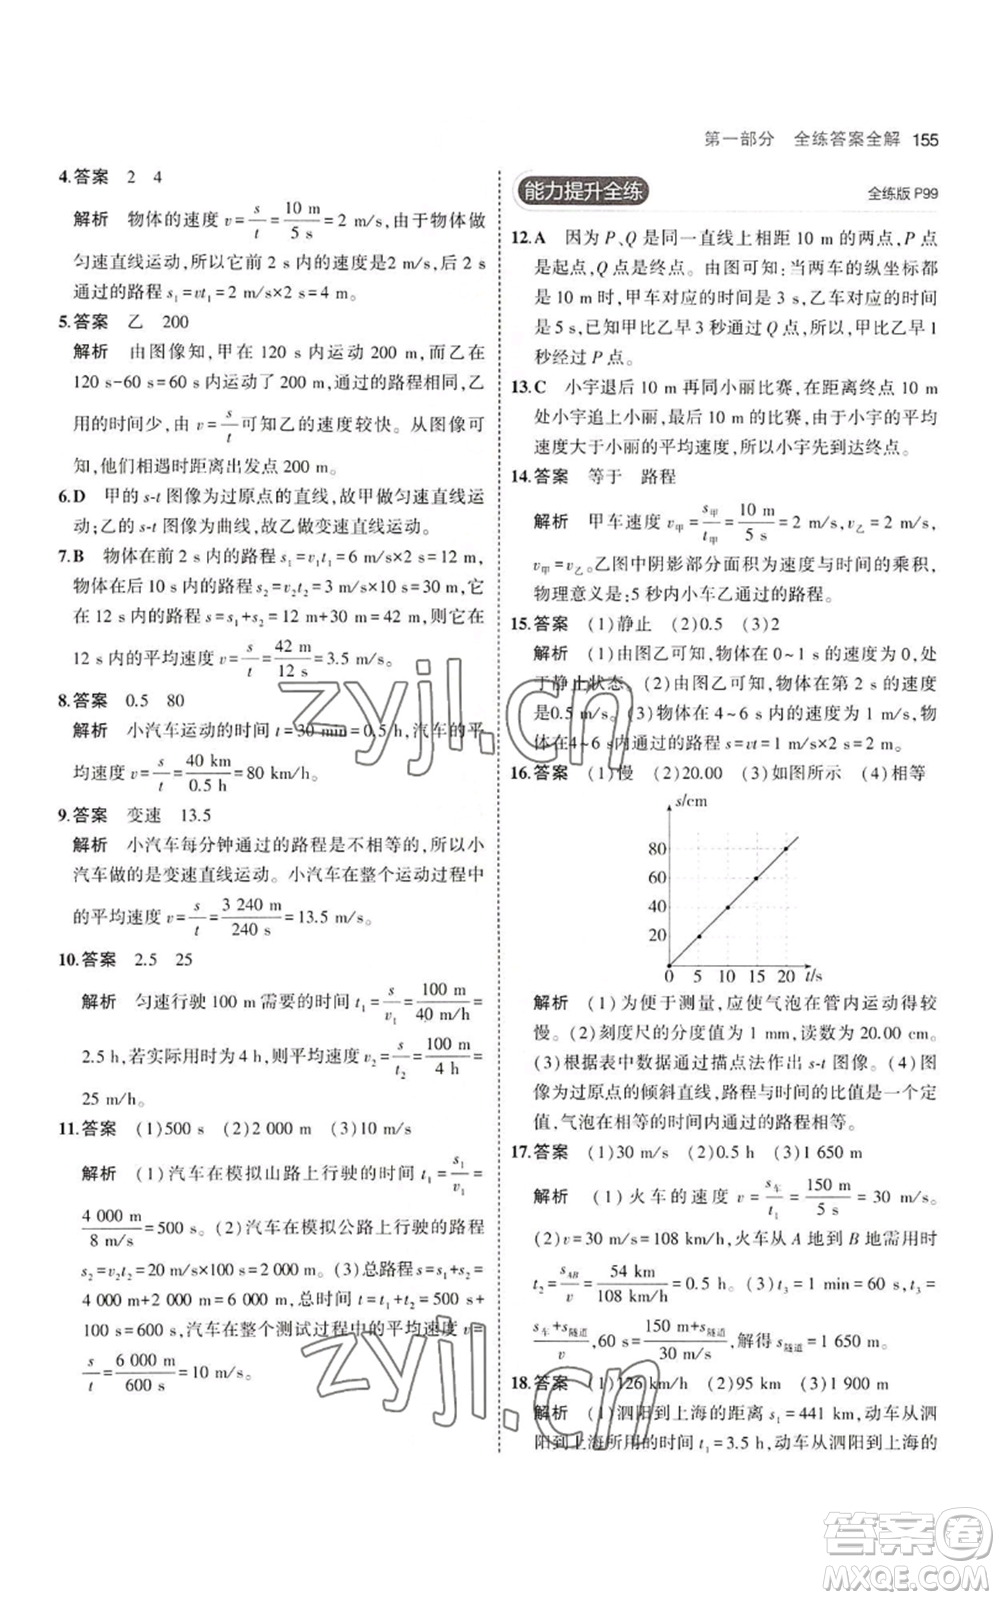 第一部分 全练答案全解 155
4.答案 2 4
解析 物体的速度 v=s/t=10 m/5 s=2 m/s,由于物体做
匀速直线运动,所以它在前 2 s 内的速度是2 m/s,后 2 s
通过的路程 s₁=vt₁=2 m/s×2 s=4 m。
5.答案 乙 200
解析 由图像知,甲在 120 s 内运动 200 m,而乙在
120 s-60 s=60 s 内运动了 200 m,通过的路程相同,乙
用的时间少,由 v=s/t可知乙的速度较快。从图像可
知,他们相遇时距离出发点 200 m。
6.D 甲的 s-t 图像为过原点的直线,故甲做匀速直线运
动;乙的 s-t 图像为曲线,故乙做变速直线运动。
7.B 物体在前 2 s 内的路程 s₁=v₁t₁=6 m/s×2 s=12 m,
物体在后 10 s 内的路程 s₂=v₂t₂=3 m/s×10 s=30 m,它
在 12 s 内的路程 s=s₁+s₂=12 m+30 m=42 m,则它在
12 s 内的平均速度 v=s/t=42 m/12 s=3.5 m/s。
8.答案 0.5 80
解析 小汽车运动的时间 t=30 min=0.5 h,汽车的平
均速度 v=s/t=40 km/0.5 h=80 km/h。
9.答案 变速 13.5
解析 小汽车每分钟通过的路程是不相等的,所以小
汽车做的是变速直线运动。小汽车在整个运动过程中
的平均速度 v=s/t=3 240 m/240 s=13.5 m/s。
10.答案 2.5 25
解析 匀速行驶 100 m 需要的时间 t₁=s/v₁=100 m/40 m/h=
2.5 h,若实际用时为4 h,则平均速度 v₂=s/t₂=100 m/4 h=
25 m/h。
11.答案 (1)500 s (2)2 000 m (3)10 m/s
解析 (1)汽车在模拟山路上行驶的时间 t₁=s₁/v₁=
4 000 m/8 m/s=500 s。(2)汽车在模拟公路上行驶的路程
s₂=v₂t₂=20 m/s×100 s=2 000 m。(3)总路程 s=s₁+s₂=
4 000 m+2 000 m=6 000 m,总时间 t=t₁+t₂=500 s+
100 s=600 s,汽车在整个测试过程中的平均速度 v=
s/t=6 000 m/600 s=10 m/s。
能力提升全练 全练版 P99
12.A 因为 P、Q 是同一直线上相距 10 m 的两点,P 点
是起点,Q 点是终点。由图可知:当两车的纵坐标都
是 10 m 时,甲车对应的时间是 3 s,乙车对应的时间
是 5 s,已知甲比乙早 3 秒通过 Q 点,所以,甲比乙早 1
秒经过 P 点。
13.C 小宇退后 10 m 再同小丽比赛,在距离终点 10 m
处小宇追上小丽,最后 10 m 的比赛,由于小宇的平均
速度大于小丽的平均速度,所以小宇先到达终点。
14.答案 等于 路程
解析 甲车速度 v甲=s甲/t甲=10 m/5 s=2 m/s,v乙=2 m/s,
v甲=v乙。乙图中阴影部分面积为速度与时间的乘积,
物理意义是:5 秒内小车乙通过的路程。
15.答案 (1)静止 (2)0.5 (3)2
解析 (1)由图乙可知,物体在 0~1 s 的速度为 0,处
于静止状态。(2)由图乙可知,物体在第 2 s 的速度
是0.5 m/s。(3)物体在 4~6 s 内的速度为 1 m/s,物
体在4~6 s内通过的路程 s=vt=1 m/s×2 s=2 m。
16.答案 (1)慢 (2)20.00 (3)如图所示 (4)相等
s/cm
80
60
40
20
0 5 10 15 20 t/s
解析 (1)为便于测量,应使气泡在管内运动得较
慢。(2)刻度尺的分度值为 1 mm,读数为 20.00 cm。
(3)根据表中数据通过描点法作出 s-t 图像。(4)图
像为过原点的倾斜直线,路程与时间的比值是一个定
值,气泡在相等的时间内通过的路程相等。
17.答案 (1)30 m/s (2)0.5 h (3)1 650 m
解析 (1)火车的速度 v=s车/t₁=150 m/5 s=30 m/s。
(2)v=30 m/s=108 km/h,火车从 A 地到 B 地需用时
t₂=sAB/v=54 km/108 km/h=0.5 h。(3)t₃=1 min=60 s,t₃=
s车+s隧道/v,60 s=150 m+s隧道/30 m/s,解得 s隧道=1 650 m。
18.答案 (1)126 km/h (2)95 km (3)1 900 m
解析 (1)泗阳到上海的距离 s₁=441 km,动车从泗
阳到上海所用的时间 t₁=3.5 h,动车从泗阳到上海的
zyjl.cn
zyjl.cn
答案圈
MXQE.COM